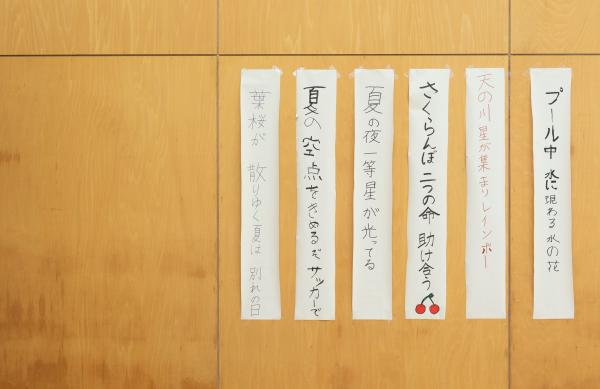 プール中 水に現わる 水の花
天の川 星が集まり レインボー
さくらんぼ 二つの命 助け合う
夏の夜 一等星が 光ってる
夏の空 点をきめるぞ サッカーで
葉桜が 散りゆく夏は 別れの日